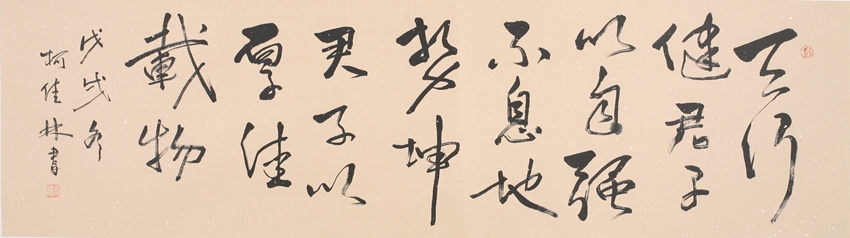 天行
健君子
以自强
不息地
势坤
君子以
厚德
載物
戊戌冬
柯佳林書